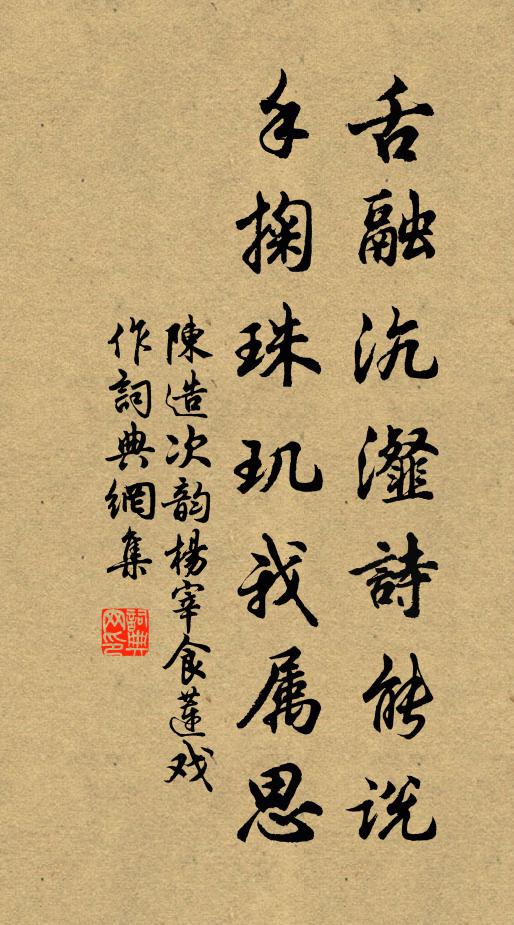 舌融沆瀣詩能説
手掬珠玑我属思
陳造次韵楊宰食蓮戏
作詞典網集
詞典网印